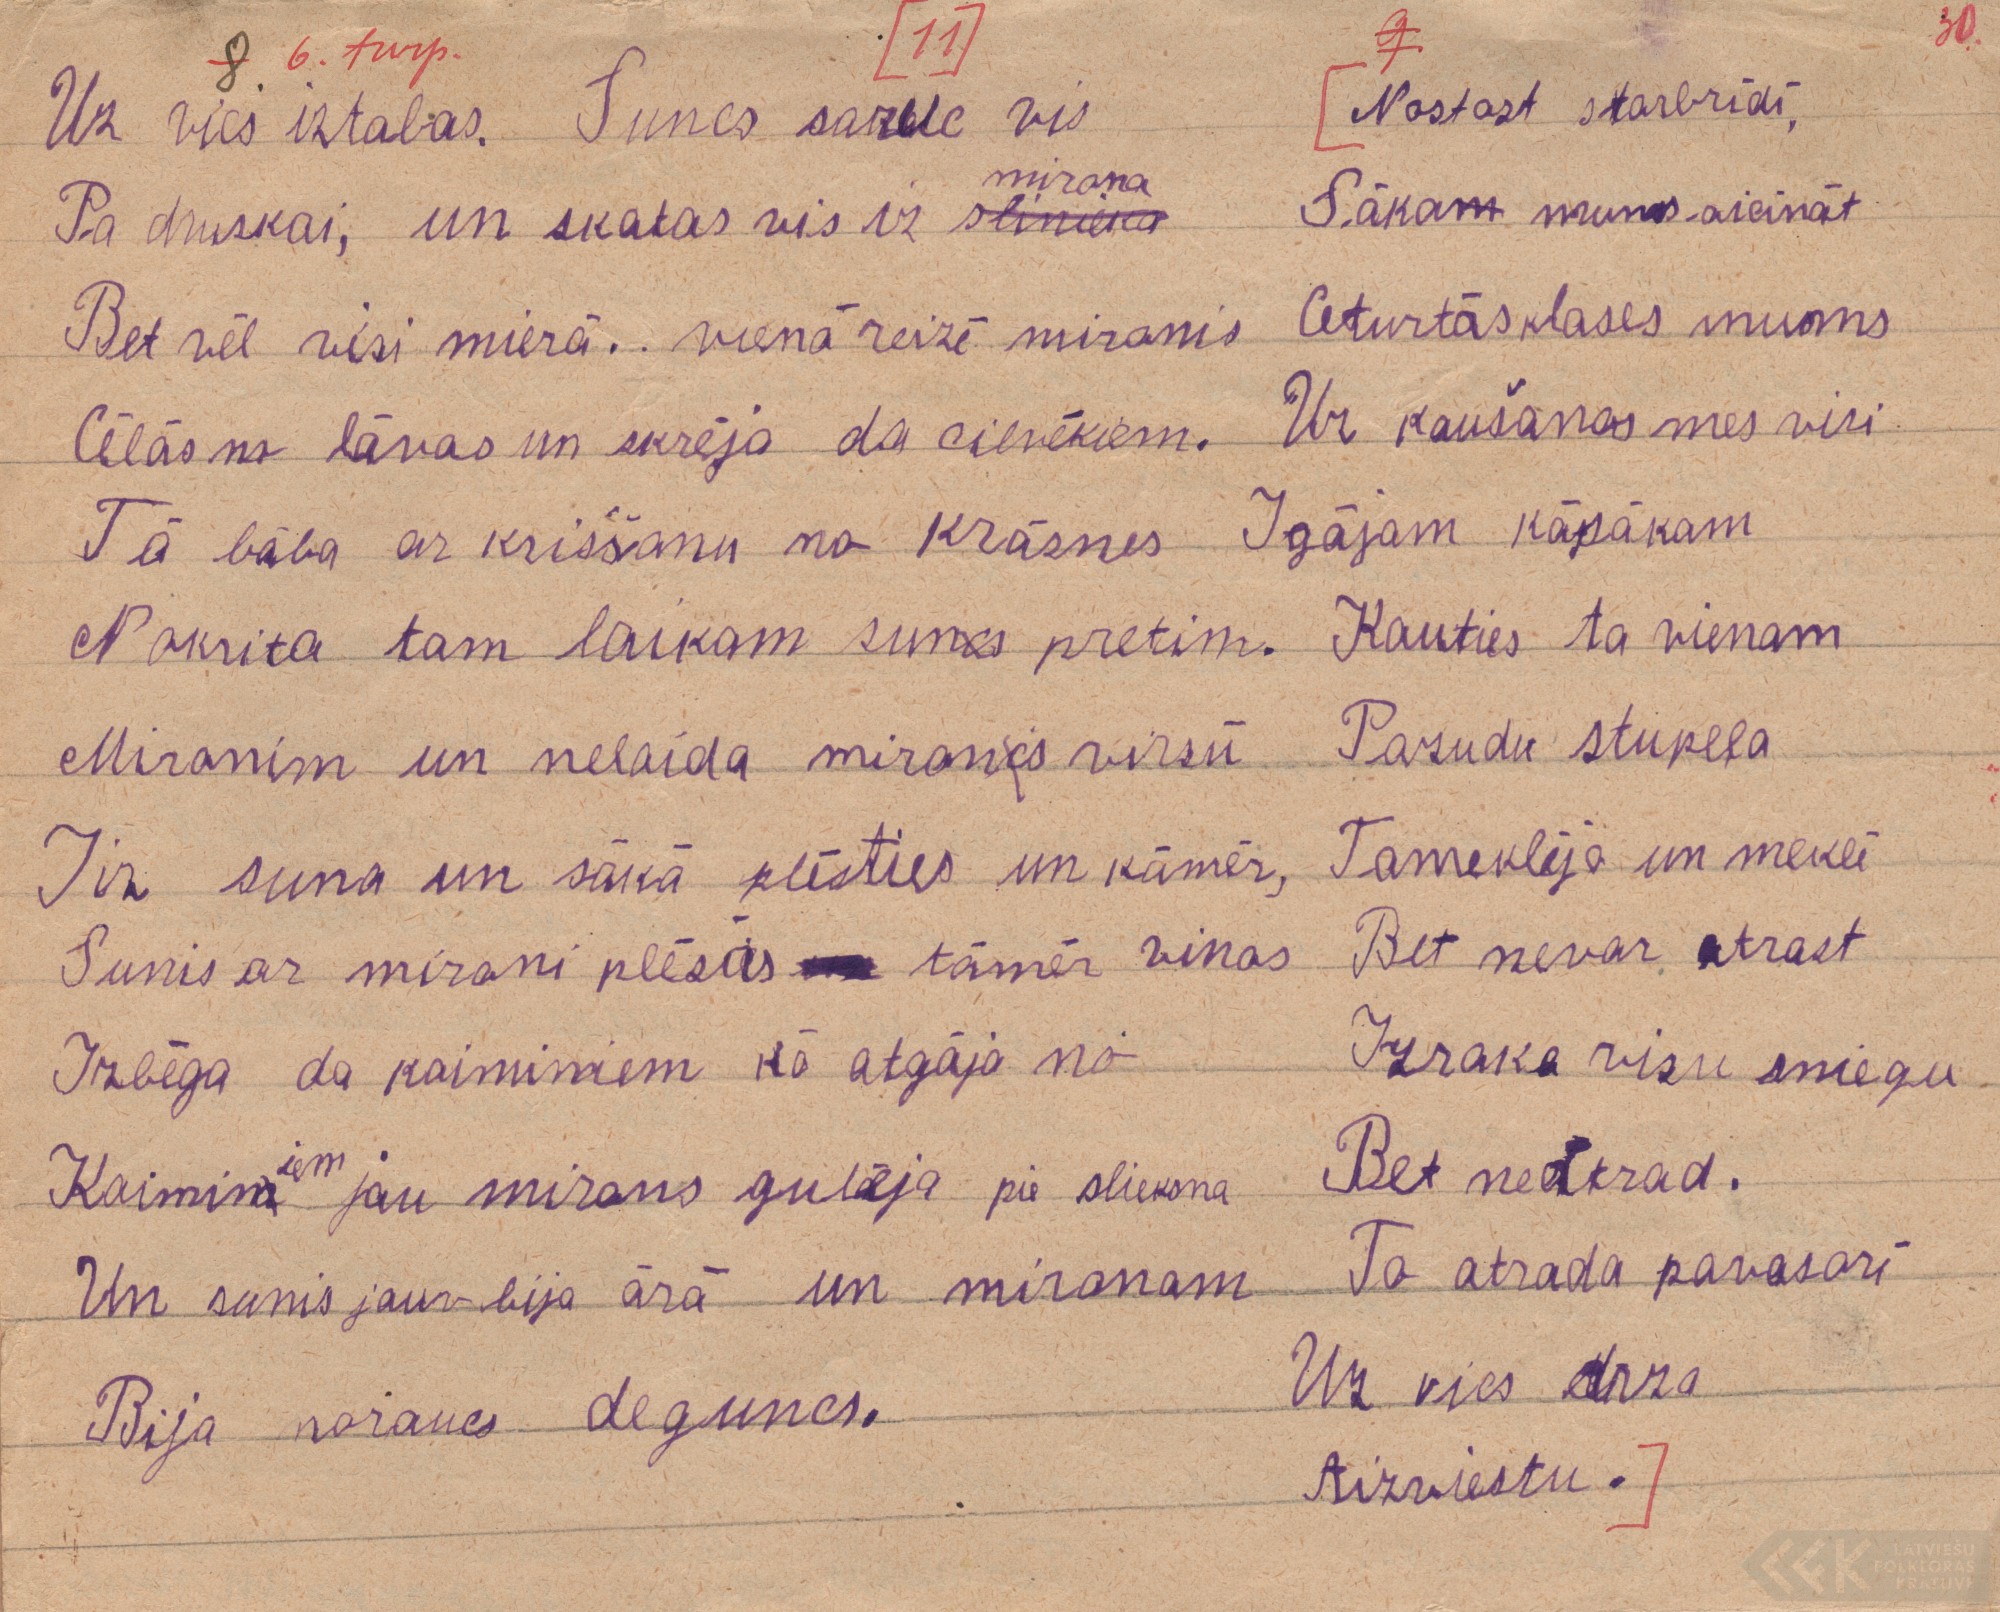 8. 6. turp.
[11]
30.
Uz vics iztabas. Suncs sarūc vis
Pa druskai, un skatas vis iz slinieka mirona
Bet vēl visi mierā.. vienā reizē mironis
Cēlās no lāvas un skrēja da cilvēkiem.
Tā bāba ar kriššanu no krāsnes
Nokrita tam laikam suncs pretim.
Mironim un nelaida mironis virsū
Iiz suna un sākā plēsties un kāmēr,
Sunis ar mironi plēsās tāmēr vinas
Izbēga da kaiminiem kā atgāja no
Kaiminiem jau mirons gulēja pie sliekсna
Un sunis jauv bija ārā un mironam
Bija noraucs deguncs.
9.
[Nostast starbrīdī,
Sākam mums aicināt
Ceturtās klases mums
Uz kaušanos mes visi
Igājam kāpākam
Kauties ta vienam
Pazudu stupela
Tameklēja un meklē
Bet nevar atrast
Izraka visu sniegu
Bet neatrad.
To atrada pavasarī
Uz vics dīrza
Aizviestu.]
LATVIEŠU
FOLKLORAS
KRĀTUVE